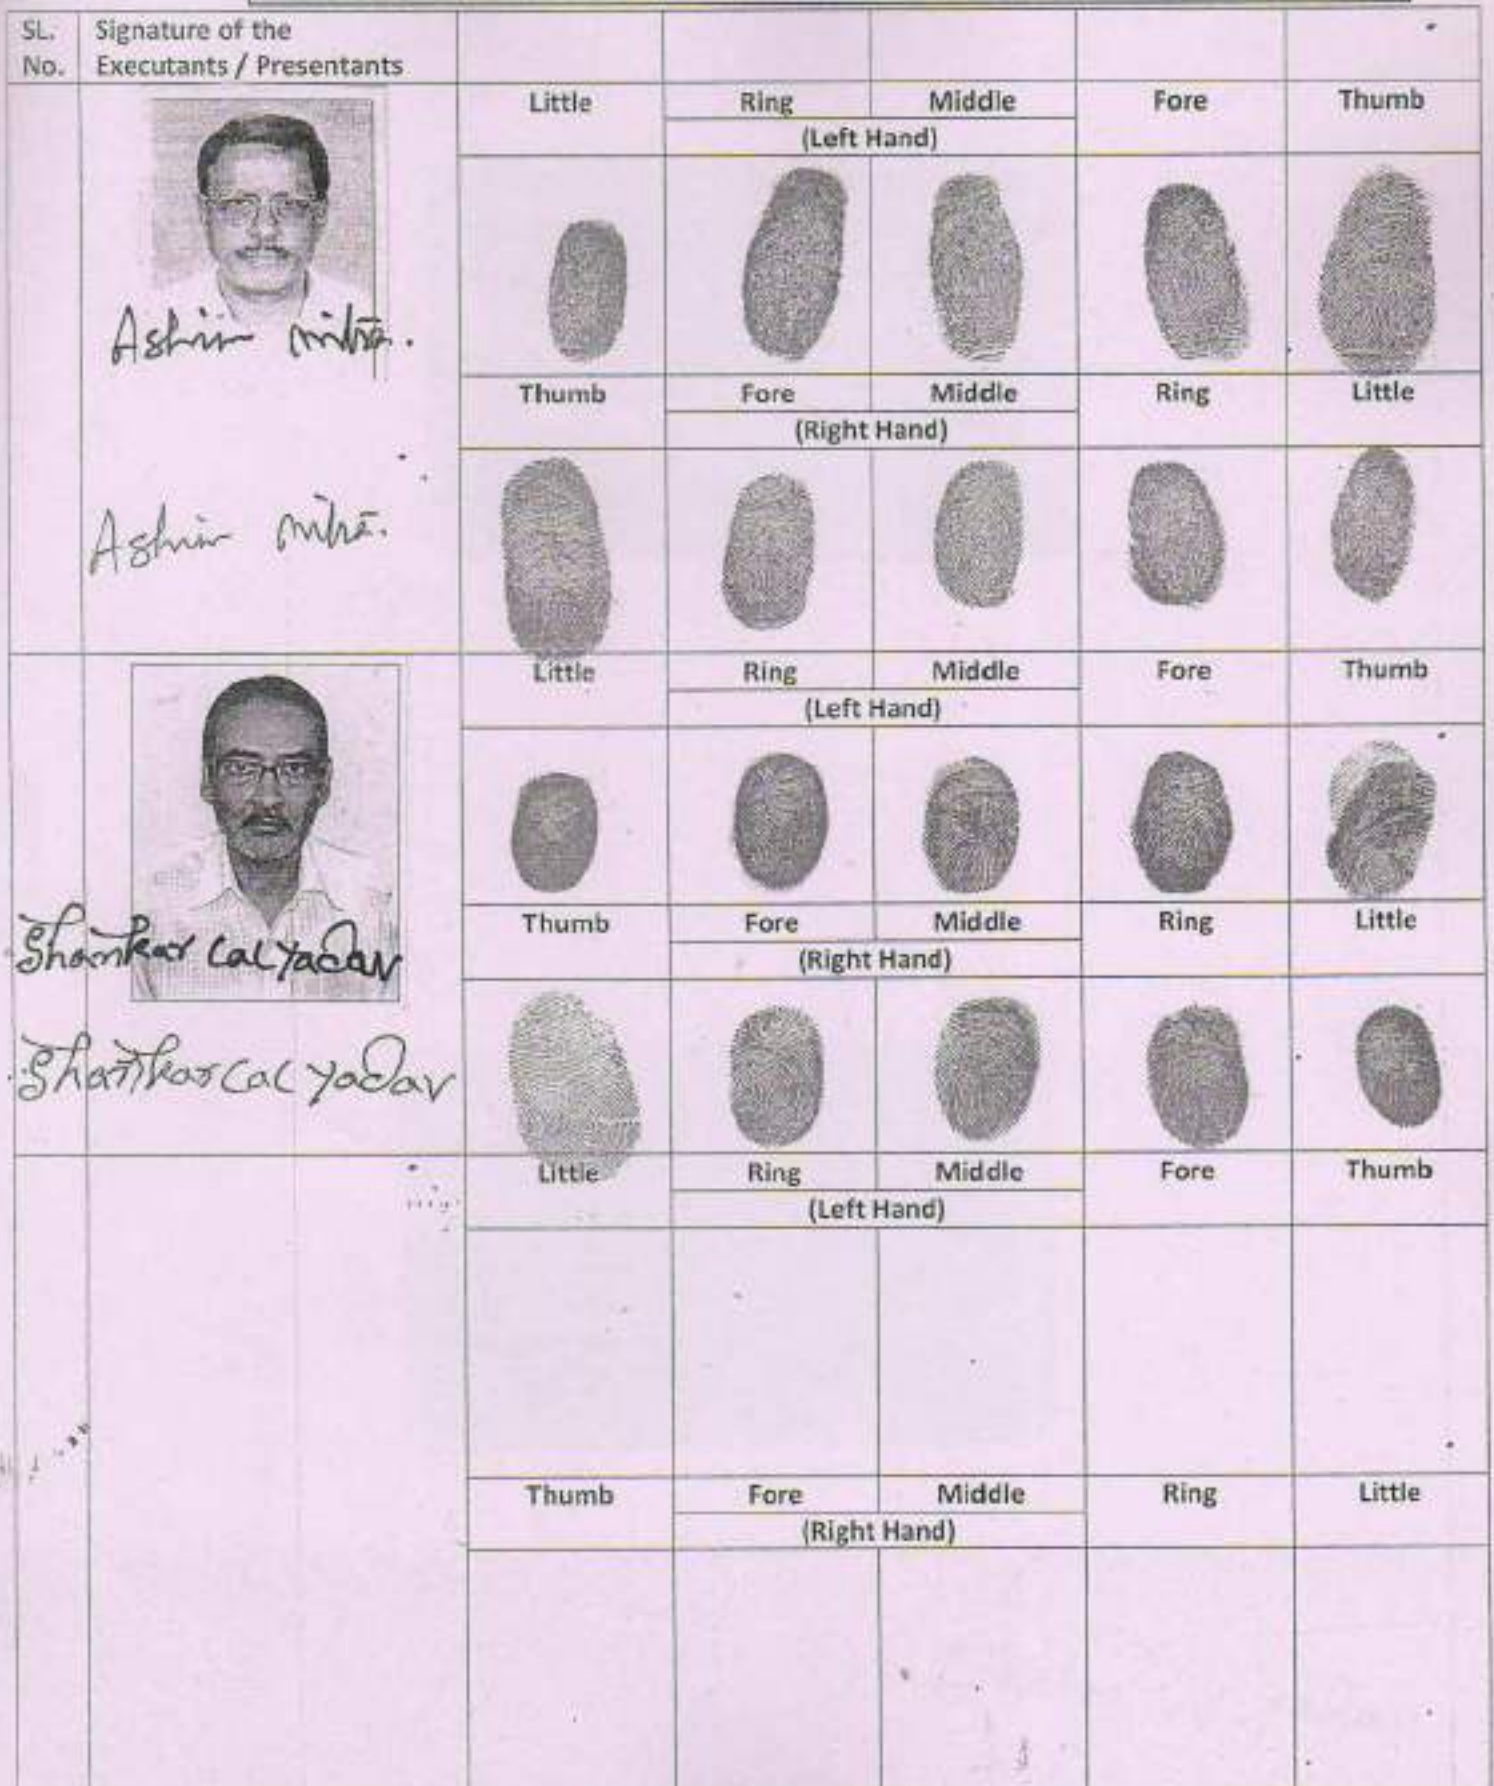 SL. Signature of the
No. Executants / Presentants
Little Ring Middle Fore Thumb
(Left Hand)
Ashim Mitra.
Thumb Fore Middle Ring Little
(Right Hand)
Ashim Mitra.
Little Ring Middle Fore Thumb
(Left Hand)
Thumb Fore Middle Ring Little
Shankar Lal Yadav
(Right Hand)
Shankar Lal Yadav
Little Ring Middle Fore Thumb
(Left Hand)
Thumb Fore Middle Ring Little
(Right Hand)